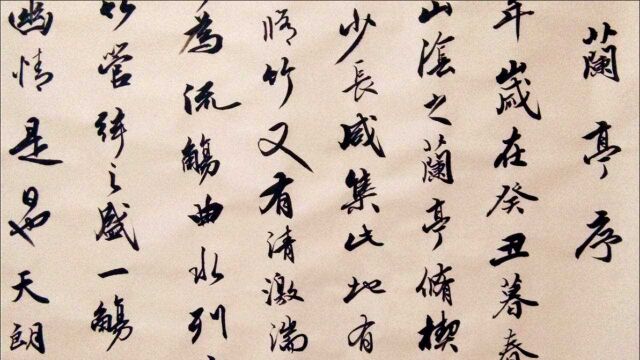 蘭亭序
年歲在癸丑暮春
山陰之蘭亭脩禊
少長咸集此地有
脩竹又有清激湍
為流觴曲水列
竹管弦之盛一觴
幽情是日也天朗